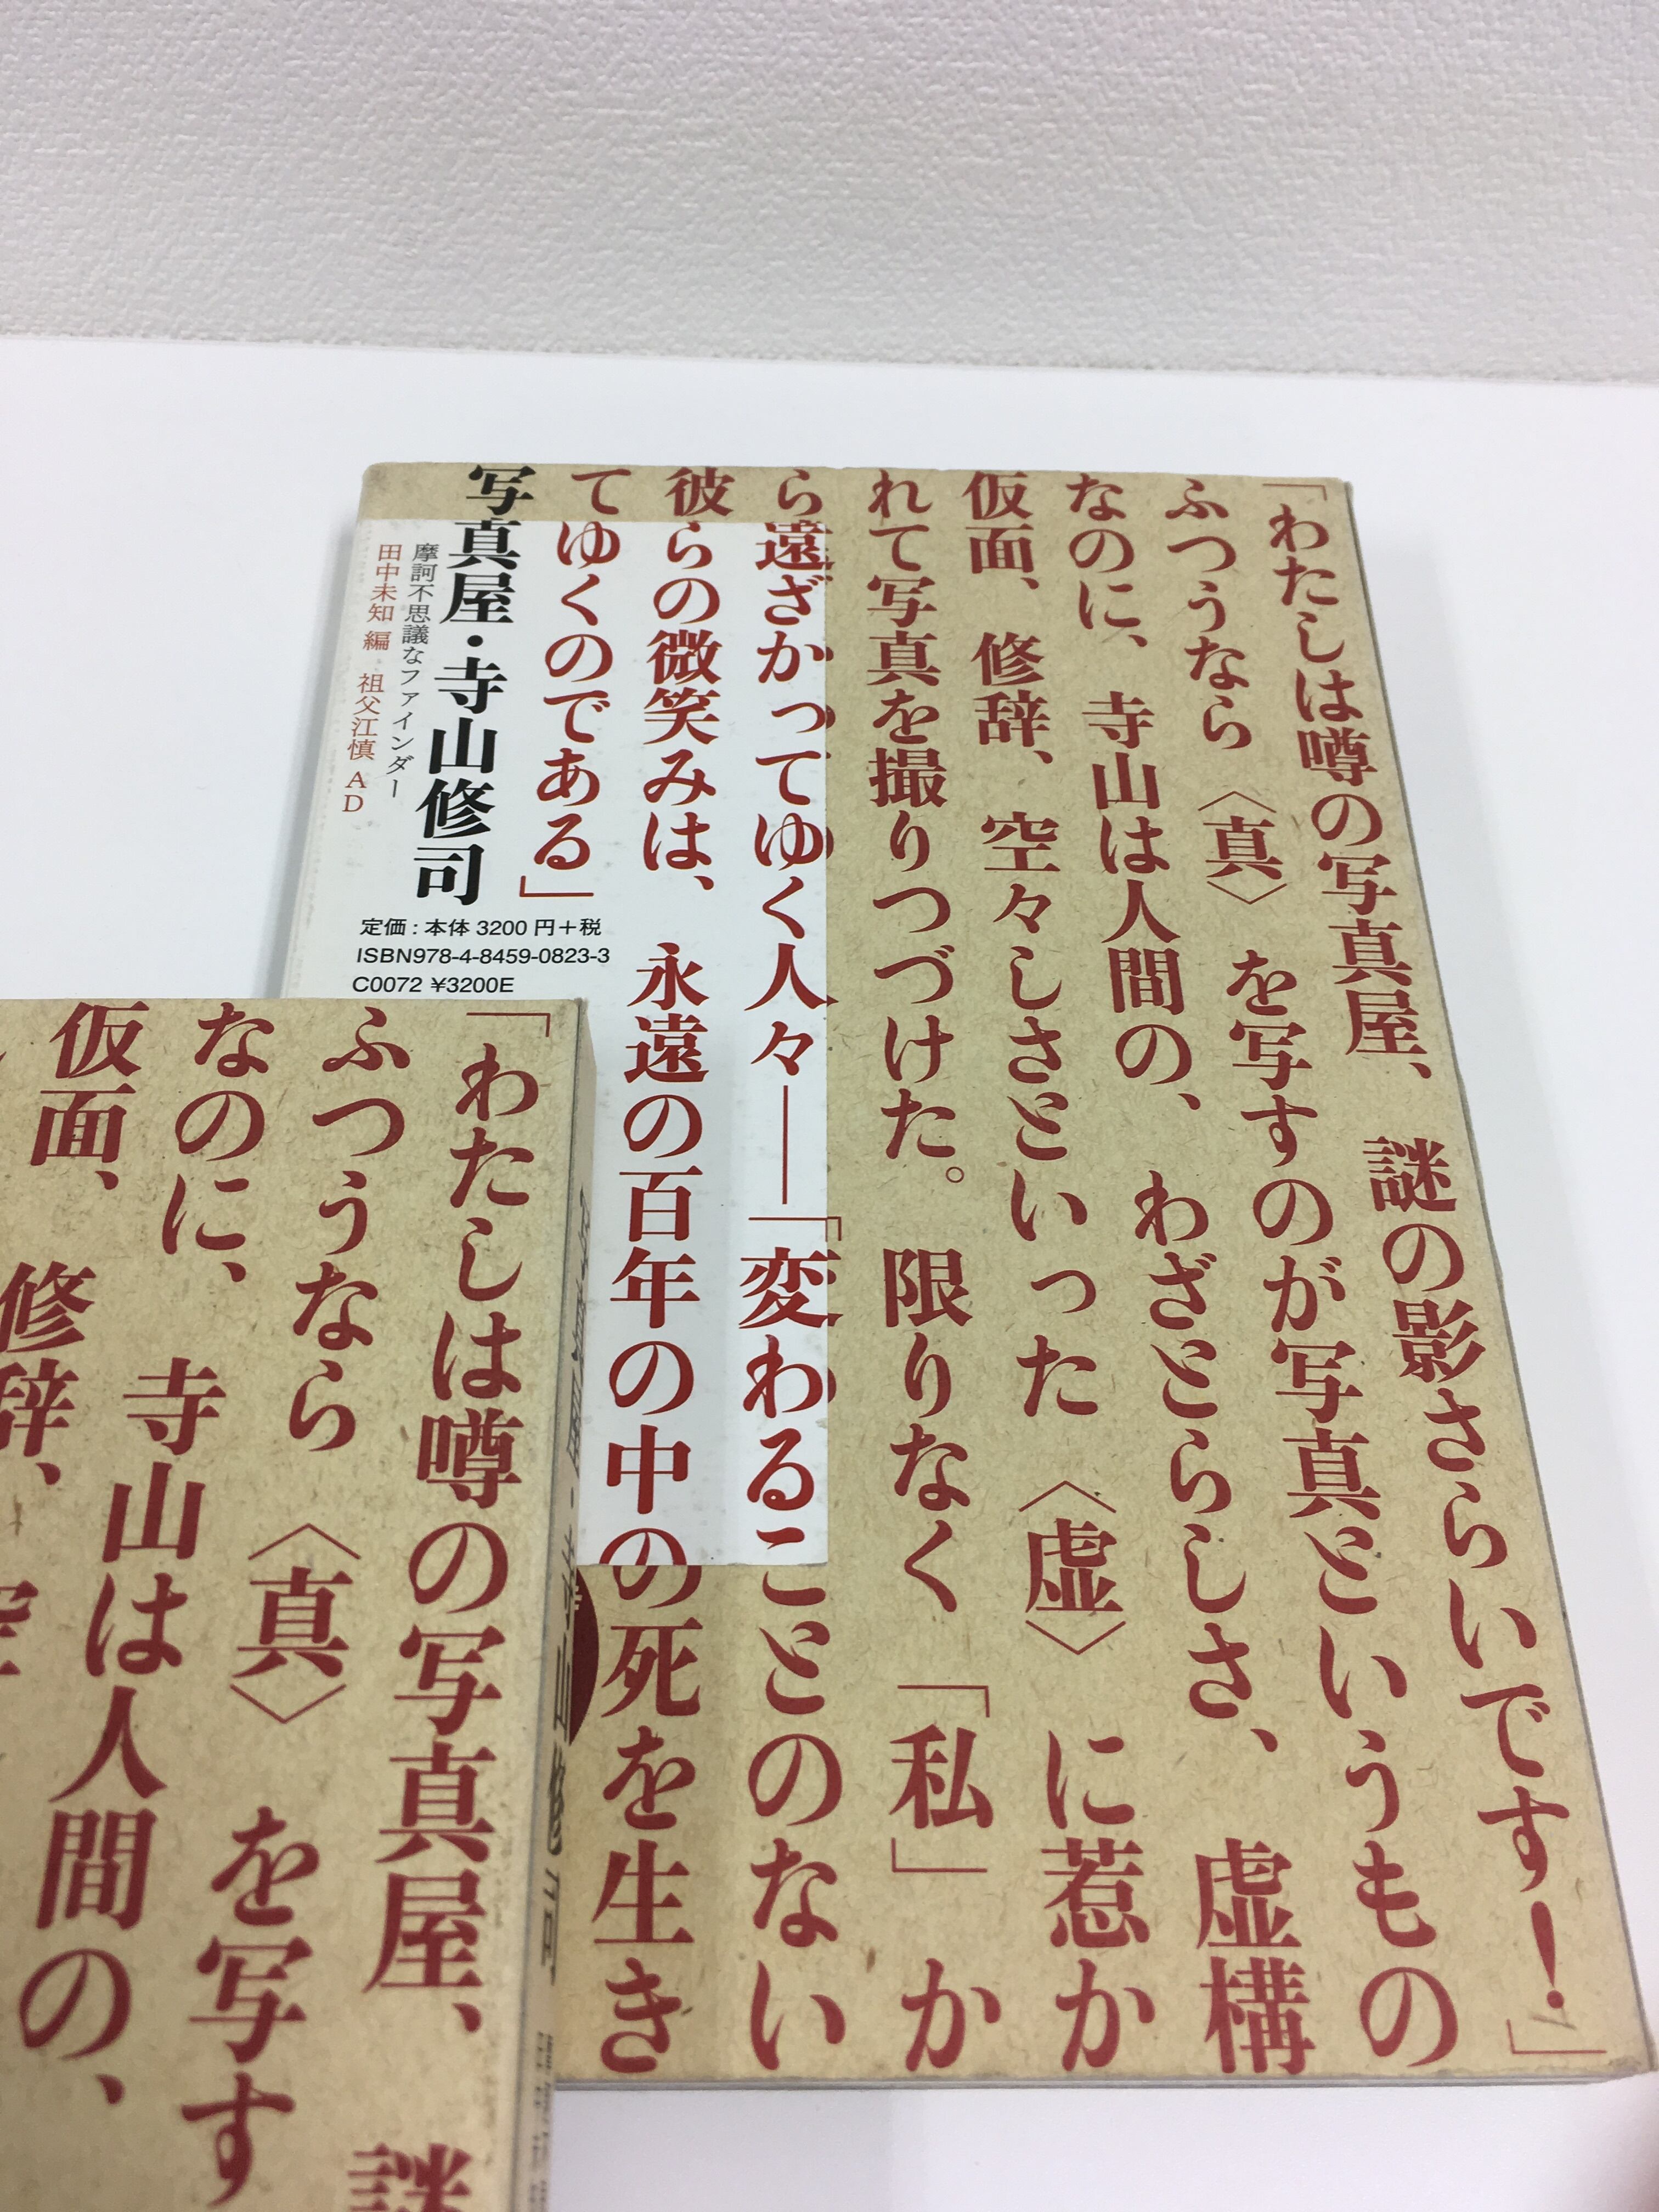 「わたしは噂の写真屋、謎の影さらいです！」
ふつうなら〈真〉を写すのが写真というもの
なのに、寺山は人間の、わざとらしさ、虚構
仮面、修辞、空々しさといった〈虚〉に惹か
れて写真を撮りつづけた。限りなく「私」か
ら遠ざかってゆく人々――「変わることのない
彼らの微笑みは、永遠の百年の中の死を生き
てゆくのである」
写真屋・寺山修司
摩訶不思議なファインダー
田中未知 編 祖父江慎 AD
定価：本体3200円＋税
ISBN978-4-8459-0823-3
C0072 ¥3200E
「わたしは噂の写真屋、謎
ふつうなら〈真〉を写す
なのに、寺山は人間の、
仮面、修辞、